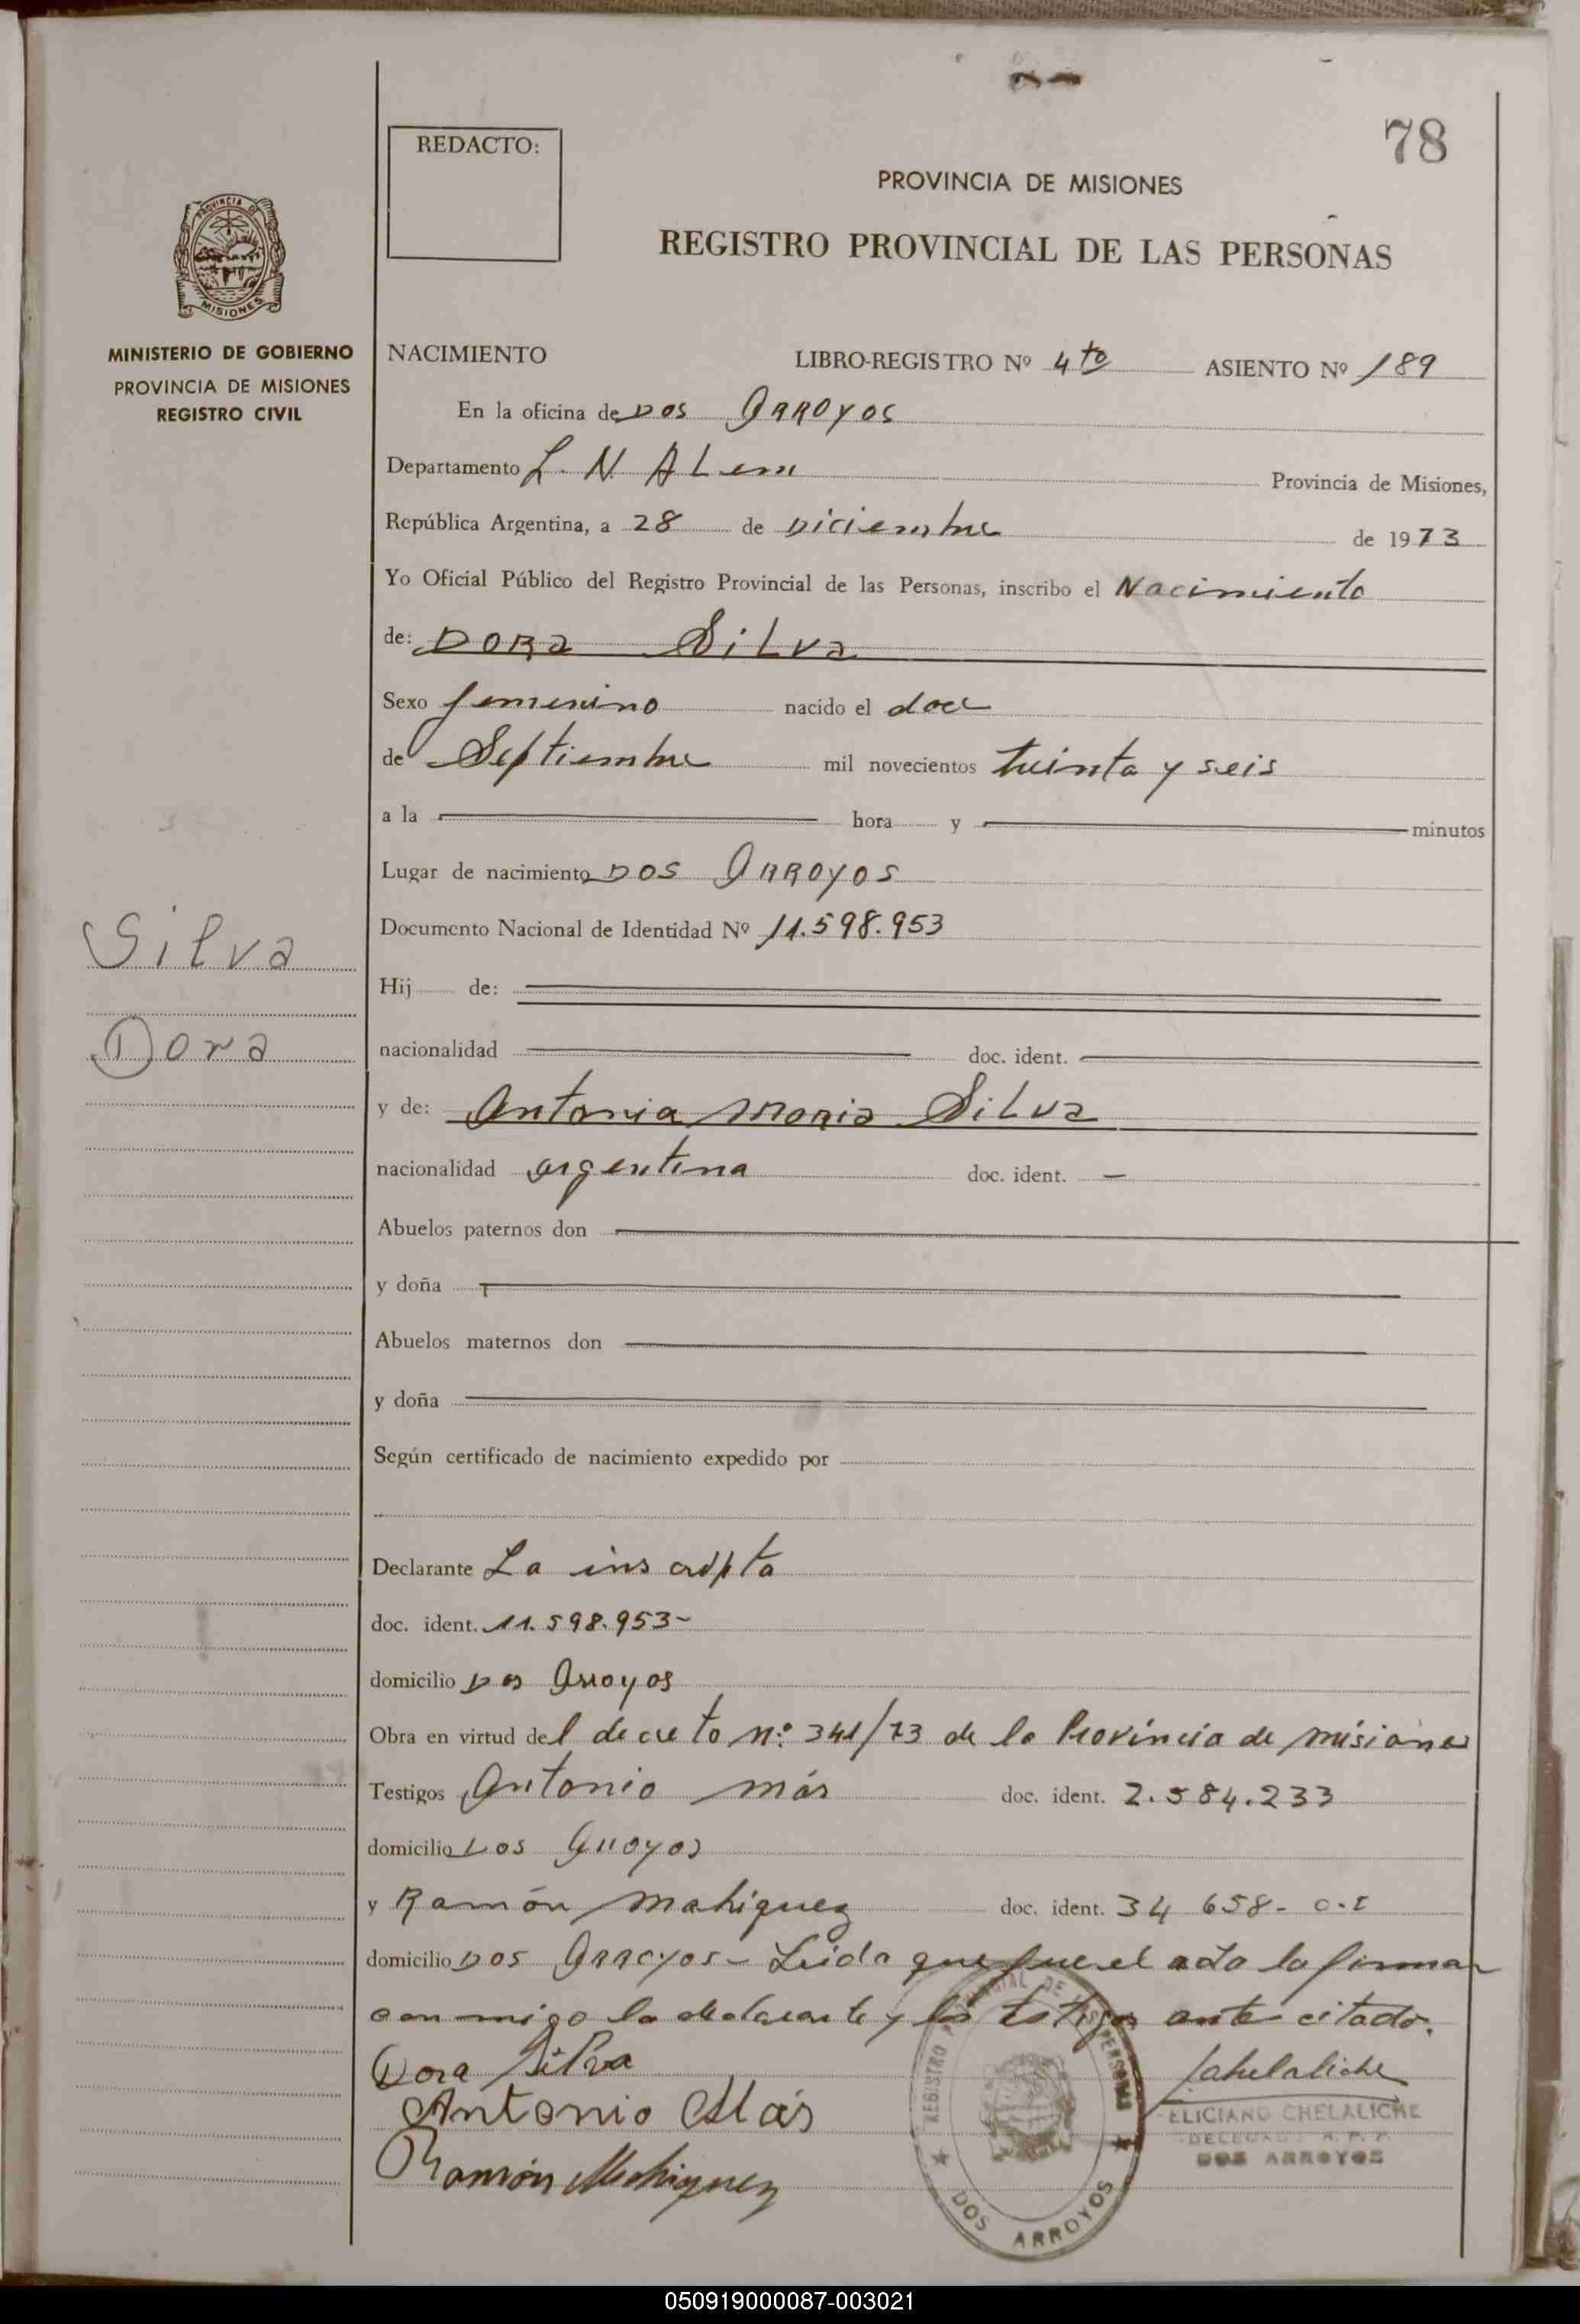 78
REDACTO:
PROVINCIA DE MISIONES
REGISTRO PROVINCIAL DE LAS PERSONAS
PROVINCIA DE
MISIONES
MINISTERIO DE GOBIERNO
PROVINCIA DE MISIONES
REGISTRO CIVIL
NACIMIENTO LIBRO-REGISTRO Nº 4to ASIENTO Nº 189
En la oficina de DOS ARROYOS
Departamento L. N ALem Provincia de Misiones,
República Argentina, a 28 de Diciembre de 1973
Yo Oficial Público del Registro Provincial de las Personas, inscribo el Nacimiento
de: DORa SiLva
Sexo femenino nacido el doce
de Septiembre mil novecientos treinta y seis
a la hora y minutos
Lugar de nacimiento DOS ARROYOS
Documento Nacional de Identidad Nº 11.598.953
Silva
Dora
Hij de:
nacionalidad doc. ident.
y de: Antonia Maria SiLva
nacionalidad argentina doc. ident. —
Abuelos paternos don
y doña
Abuelos maternos don
y doña
Según certificado de nacimiento expedido por
Declarante La inscripta
doc. ident. 11.598.953-
domicilio Dos Arroyos
Obra en virtud del decreto nº: 341/73 de la Provincia de misiones
Testigos Antonio más doc. ident. 2.584.233
domicilio Dos Arroyos
y Ramón Mahiquez doc. ident. 34 658-
domicilio DOS ARROYOS- Leida que fue el acta la firman
conmigo la declarante y los testigos ante citado.
Dora Silva
Antonio Más
Ramón Mahiquez
REGISTRO PROVINCIAL DE LAS PERSONAS
DOS ARROYOS
ELICIANO CHELALICHE
DELEGADO R. P. P.
DOS ARROYOS
050919000087-003021